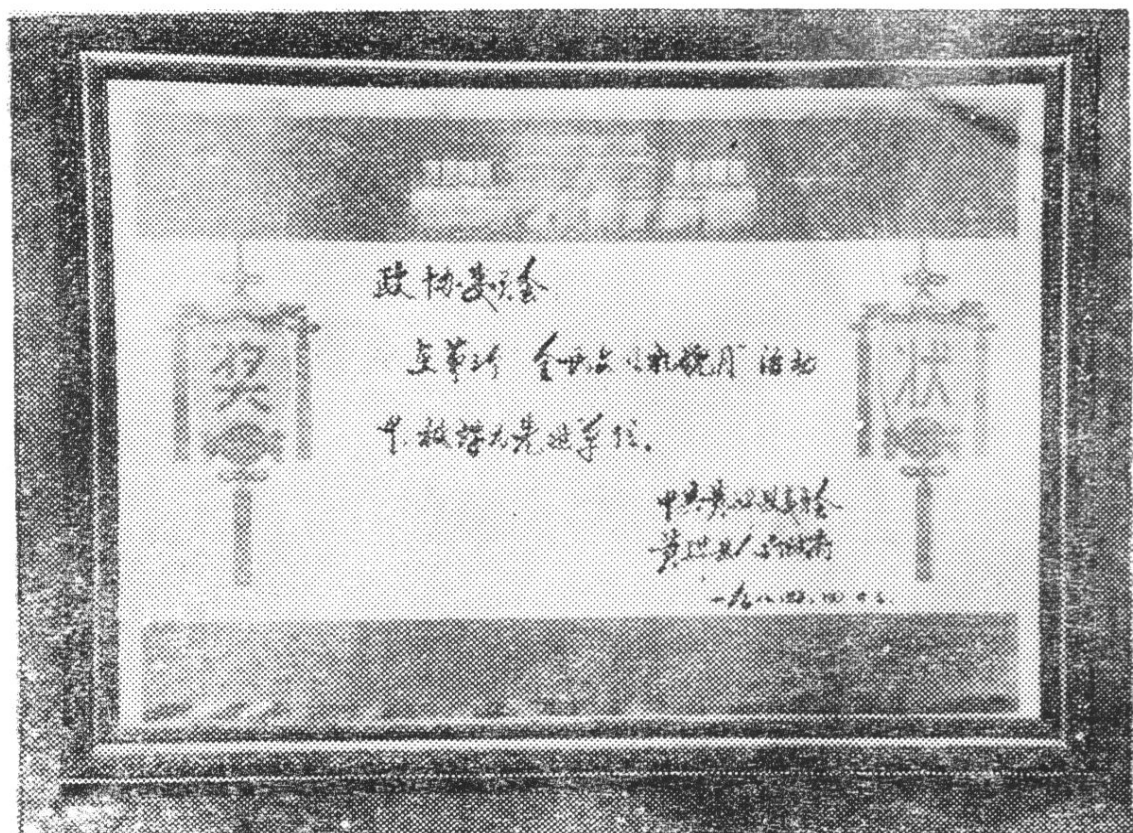 奖状
政协委员会
在第三次“全民文明礼貌月”活动
中被评为先进单位。
中共黄 县委员会
黄 县人民政府
一九八四.四.